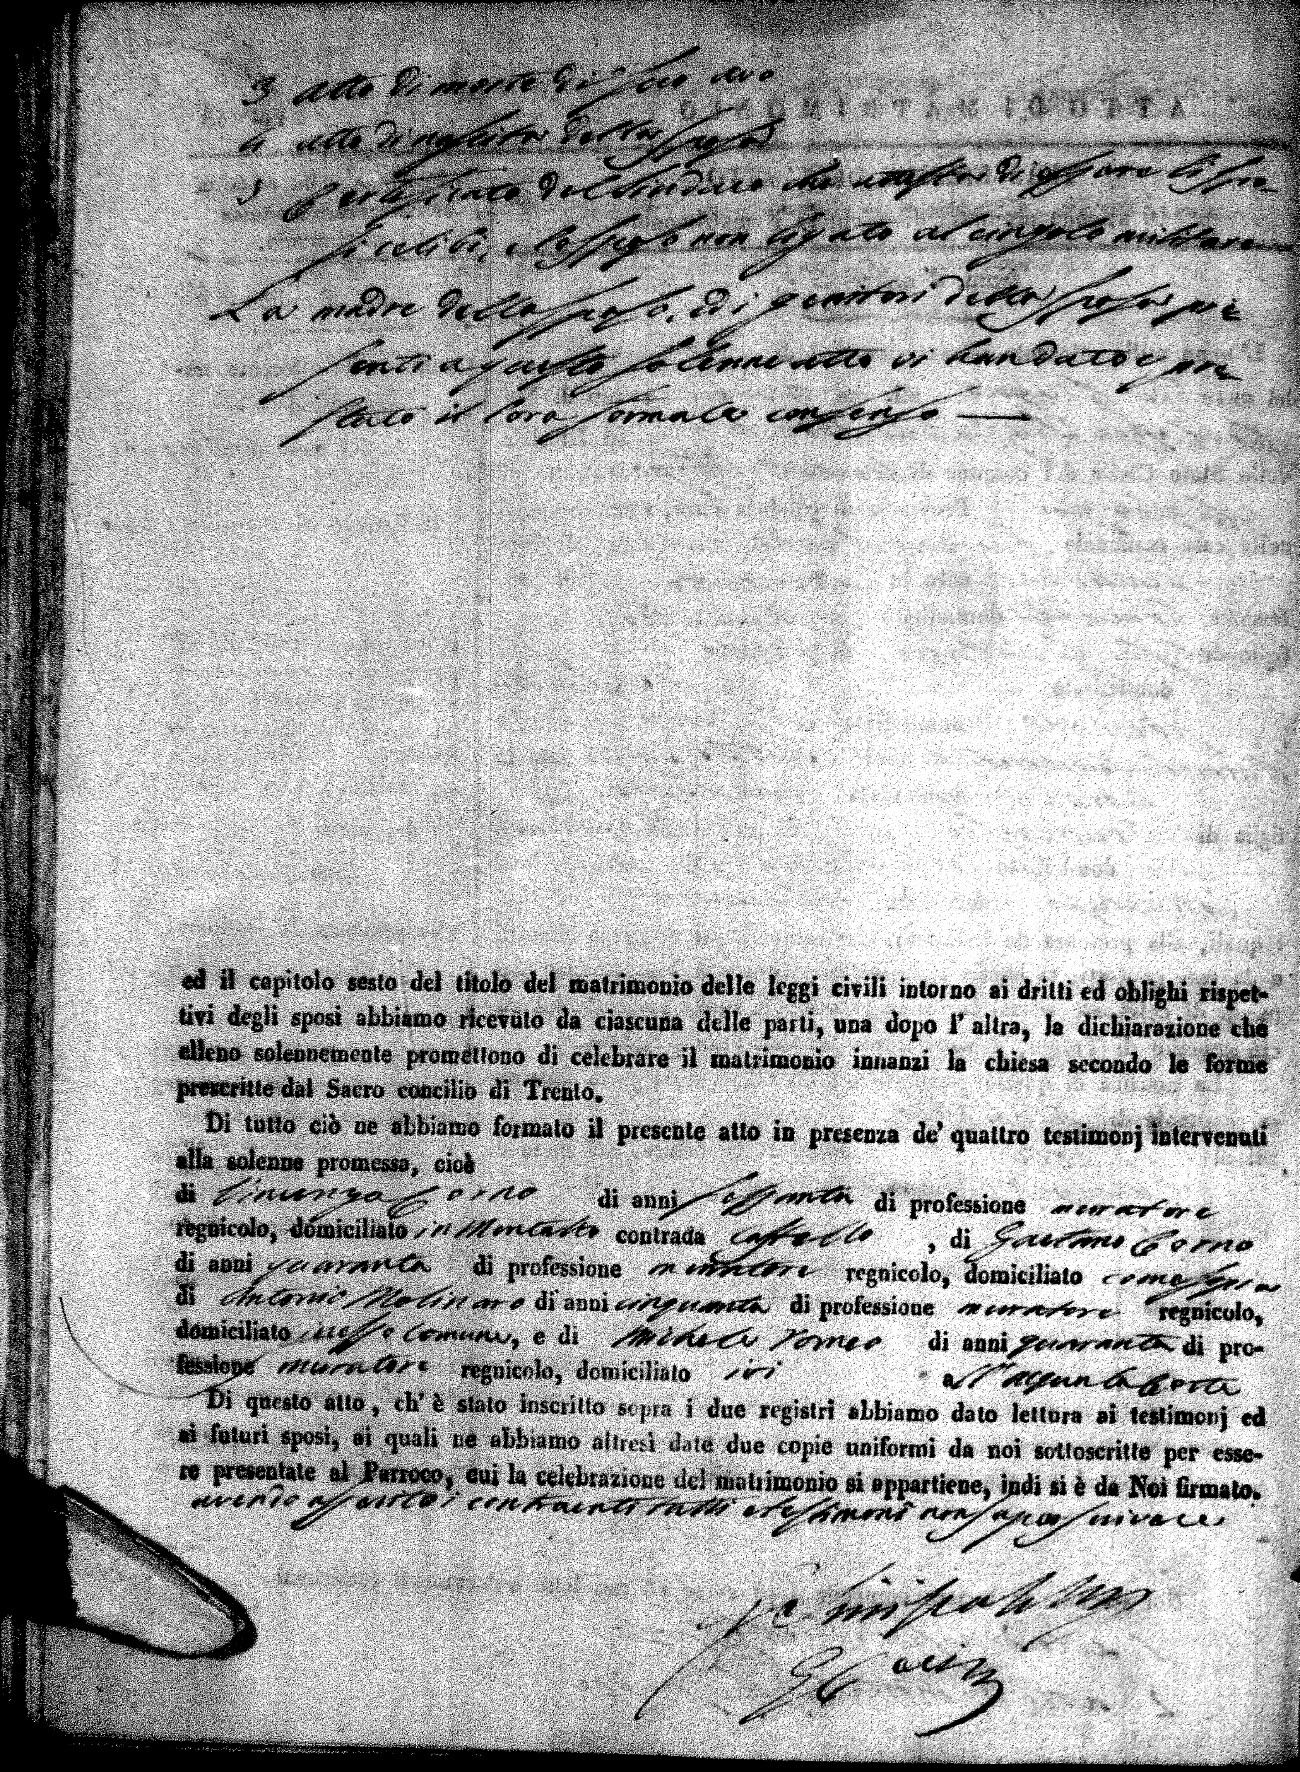 3 atto di morte di suo avo
4 atto di nascita della sposa
5 Certificato del Sindaco che attesta di essere li spo-
si celibi, e lo sposo non legato al cingolo militare
La madre dello sposo, ed i genitori della sposa pre
senti a questo solenne atto vi han dato e pre
stato il loro formale consenso —
ed il capitolo sesto del titolo del matrimonio delle leggi civili intorno ai dritti ed obblighi rispet-
tivi degli sposi abbiamo ricevuto da ciascuna delle parti, una dopo l'altra, la dichiarazione che
elleno solennemente promettono di celebrare il matrimonio innanzi la chiesa secondo le forme
prescritte dal Sacro concilio di Trento.
Di tutto ciò ne abbiamo formato il presente atto in presenza de' quattro testimonj intervenuti
alla solenne promessa, cioè
di Vincenzo Corno di anni sessanta di professione muratore
regnicolo, domiciliato in Montalto contrada Castello , di Gaetano Corno
di anni quaranta di professione muratore regnicolo, domiciliato come sopra
di Antonio Molinaro di anni cinquanta di professione muratore regnicolo,
domiciliato in esso Comune, e di Michele Romeo di anni quaranta di pro-
fessione muratore regnicolo, domiciliato ivi all'acqua la Corte
Di questo atto, ch' è stato inscritto sopra i due registri abbiamo dato lettura ai testimonj ed
ai futuri sposi, ai quali ne abbiamo altresì date due copie uniformi da noi sottoscritte per esse-
re presentate al Parroco, cui la celebrazione del matrimonio si appartiene, indi si è da Noi firmato.
avendo asserito i contraenti tutti e testimoni non saper scrivere